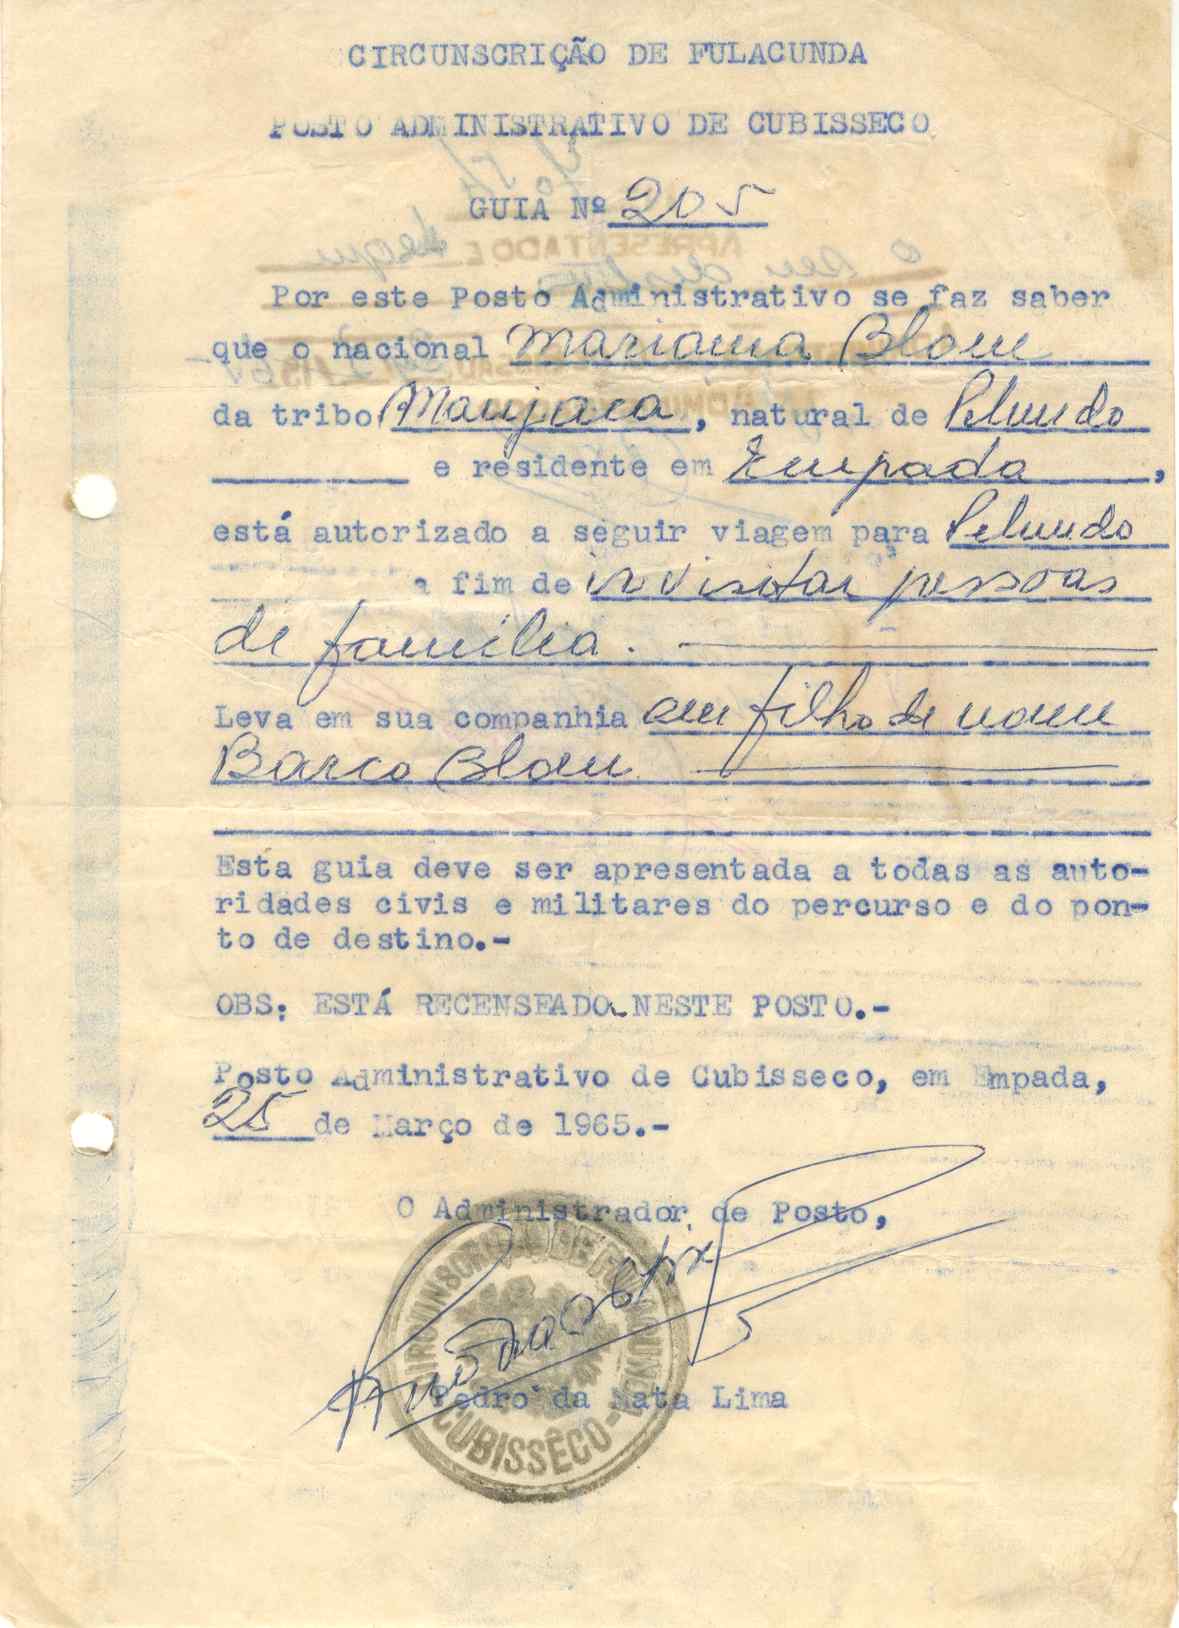 CIRCUNSCRIÇÃO DE FULACUNDA
POSTO ADMINISTRATIVO DE CUBISSECO
GUIA Nº 205
Por este Posto Administrativo se faz saber
que o nacional Mariama Blom
da tribo Manjaca, natural de Pelundo
e residente em Empada,
está autorizado a seguir viagem para Pelundo
a fim de ir visitar pessoas
de família.
Leva em sua companhia um filho de nome
Barco Blom
Esta guia deve ser apresentada a todas as auto-
ridades civis e militares do percurso e do pon-
to de destino.-
OBS: ESTÁ RECENSEADO NESTE POSTO.-
Posto Administrativo de Cubisseco, em Empada,
25 de Março de 1965.-
O Administrador de Posto,
CIRCUNSCRIÇÃO DE FULACUNDA
Pedro da Mata Lima
CUBISSÊCO